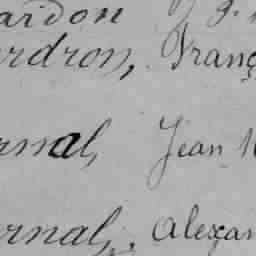 ardon
rdron, Franç
rnal, Jean
rnal, Alexan